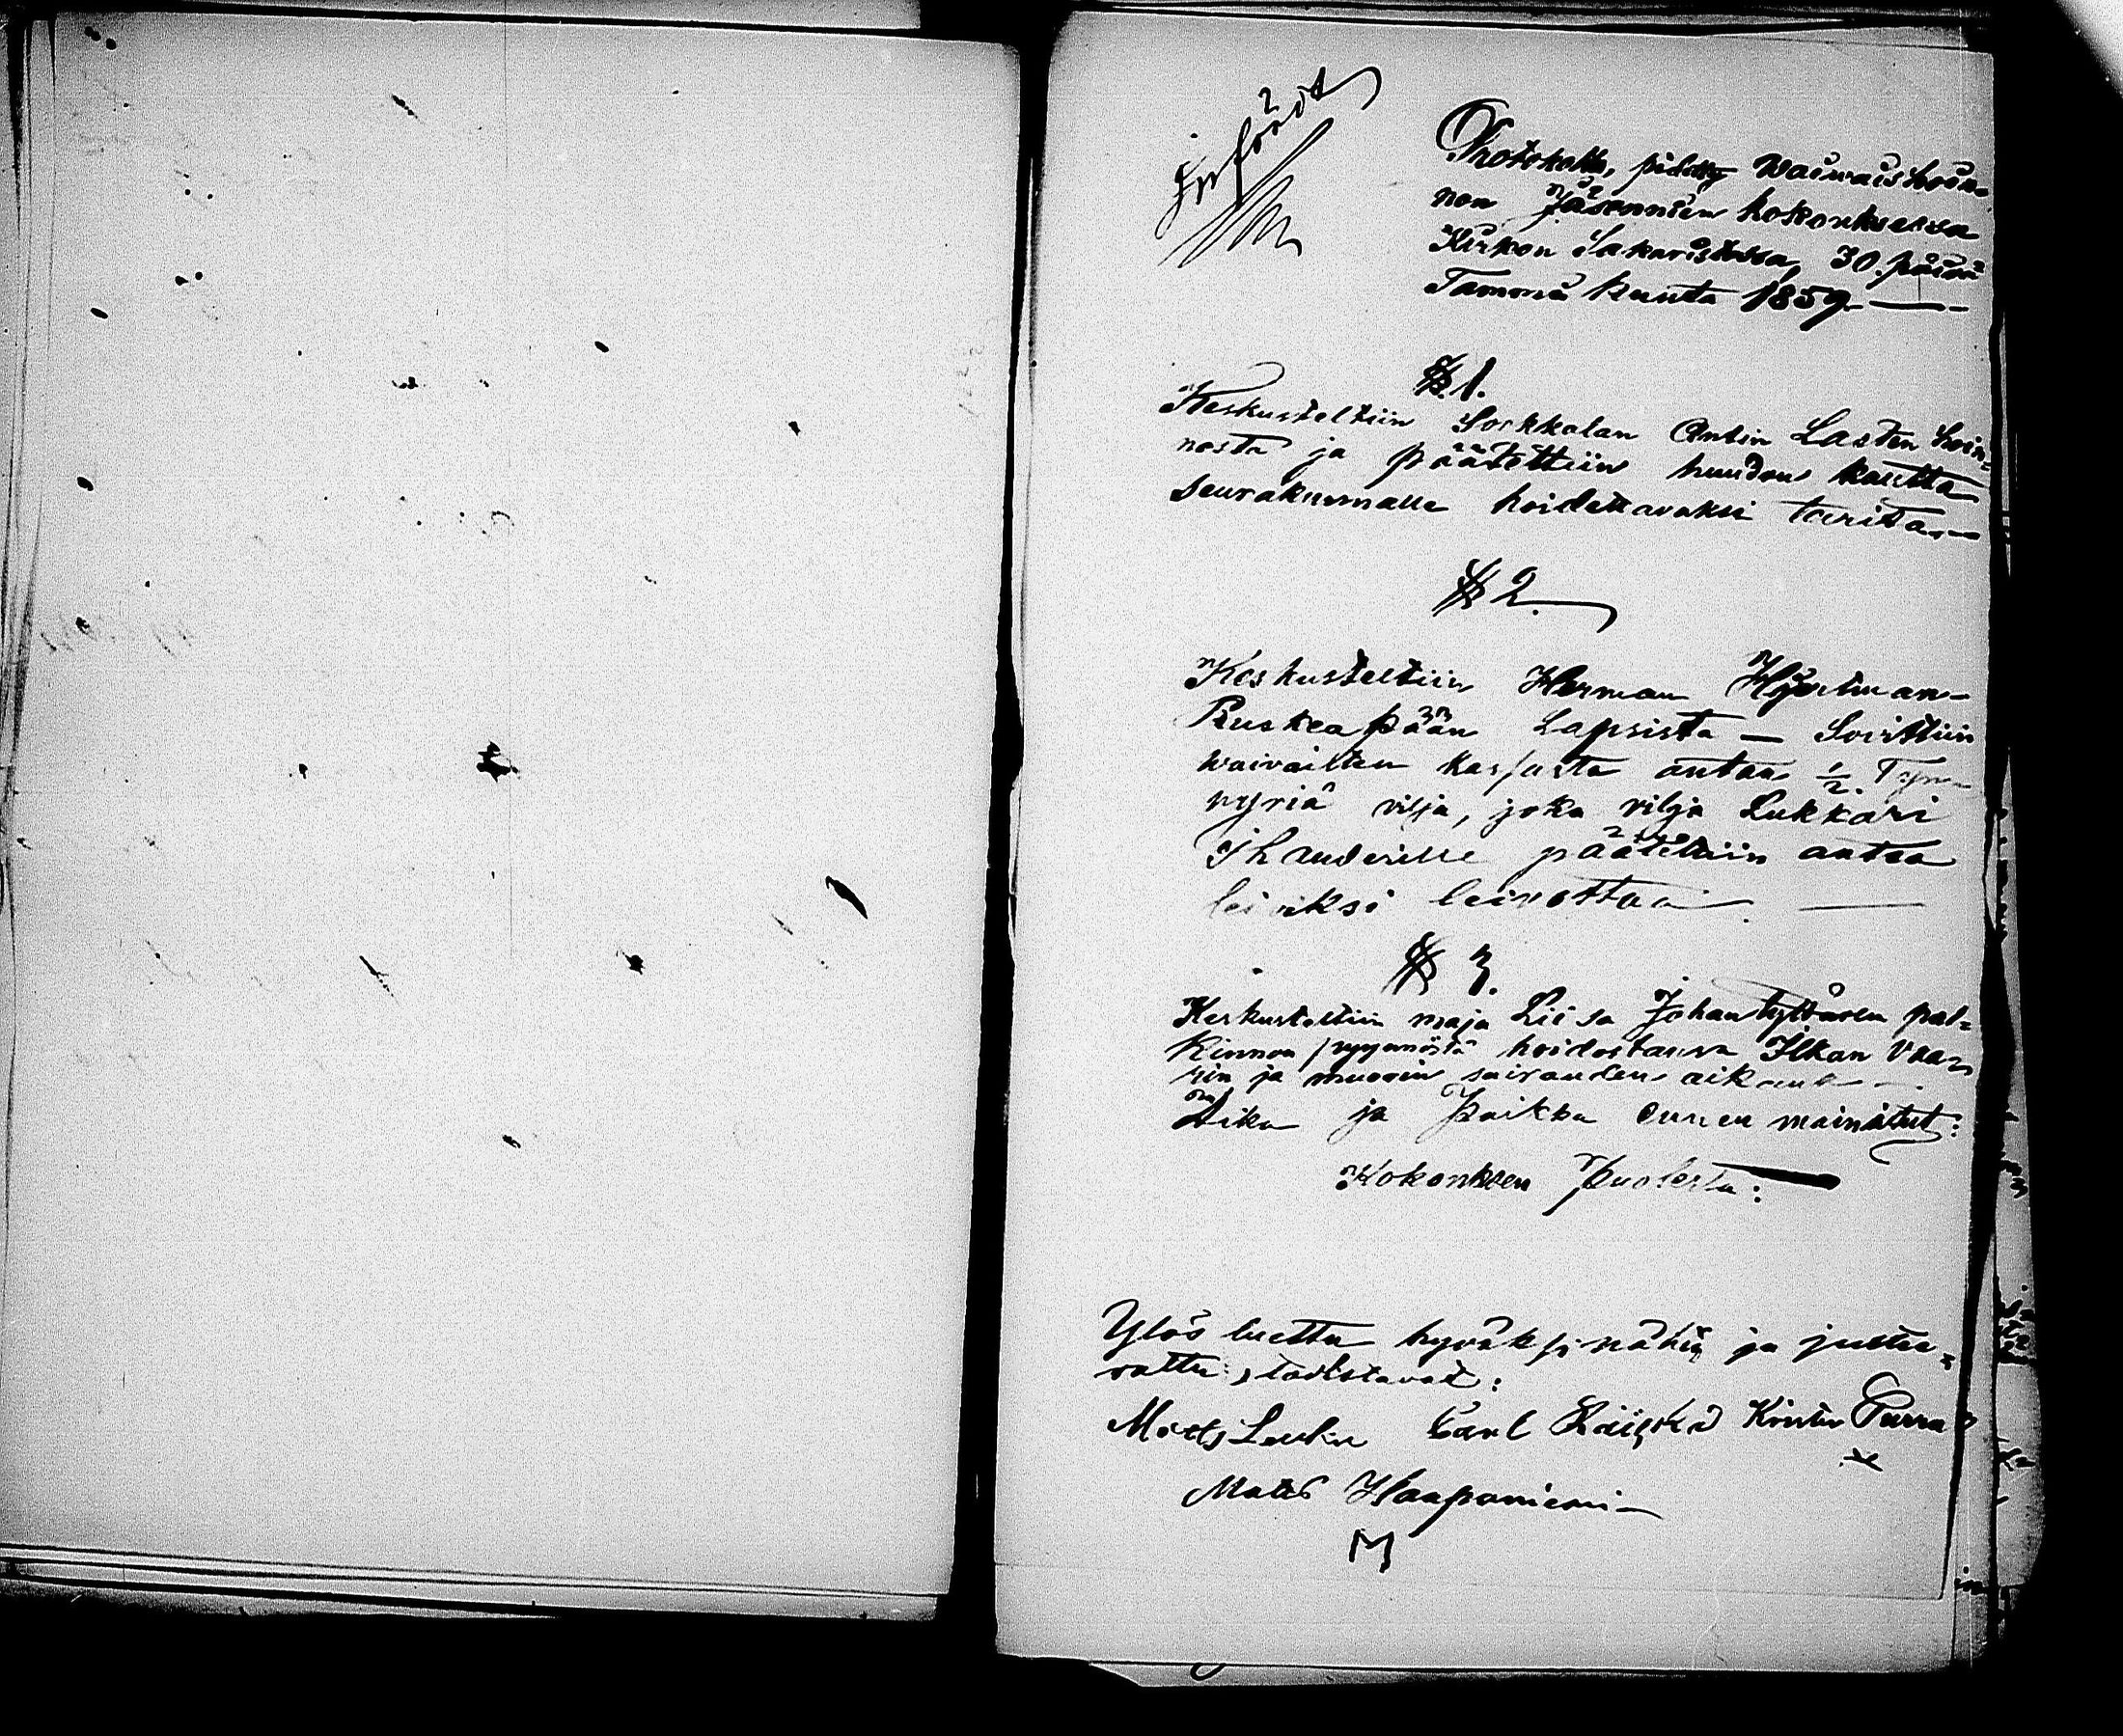 Införd
Protokolla, pidetty Waiwaishoin-
non Jäsennien kokouksessa
Kirkon Sakaristossa, 30. päivä
Tammi kuuta 1859.
§. 1.
Keskusteltiin Sorkkolan Antin Lasten hoin-
nosta ja päätettiin huudon kautta
Seurakunnalle hoidettavaksi tarita.
§ 2.
Keskusteltiin Herman
Ruskeapään Lapsista — Sovittiin
waivaisten kassasta antaa 1/2. Tyn-
nyriä vilja, joka vilja Lukkari
Thauderille päätettiin antaa
leiviksi leivottaa. —
§ 3.
Keskusteltiin maja Liisa Johantyttären pal-
kinnon pyynnöstä hoidostansa Ilkan Vaa-
rin ja muorin sairauden aikana —
Aika ja Paikka ennen mainitut:
Kokouksen Puolesta:
Ylös luettu hyväksi nähty ja justee-
rattu, todistavat:
Matts Carl Räiskä Purra
Matts Haapaniemi